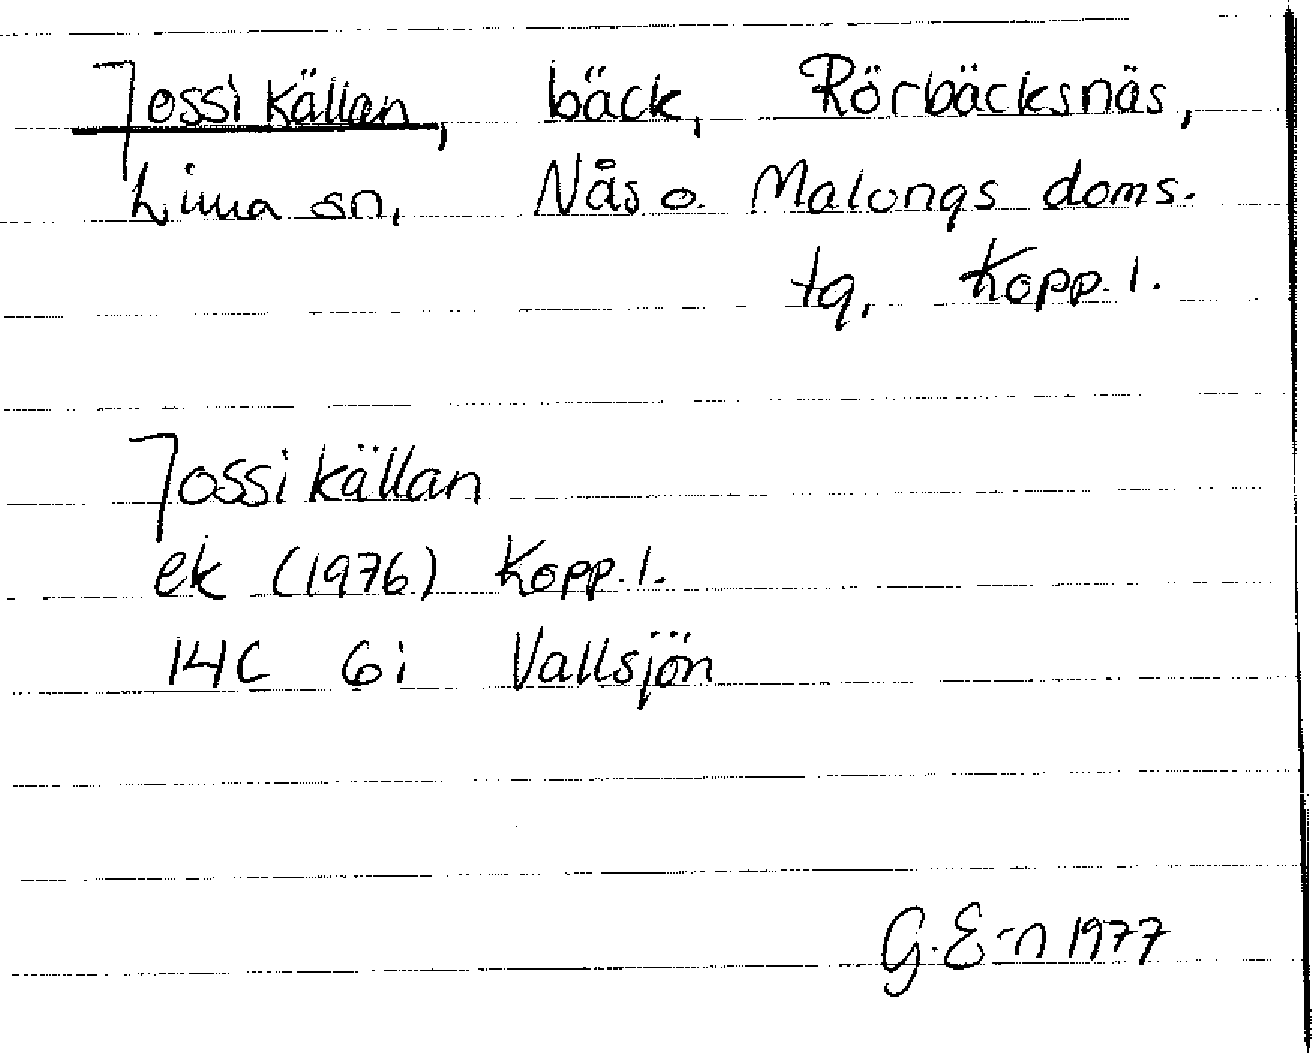 Jossikällan, bäck, Rörbäcksnäs,
Lima sn, Nås o. Malungs doms.
tg, Kopp. l.
Jossikällan
ek (1976) Kopp. l.
14C 6i Vallsjön
G. E-n 1977